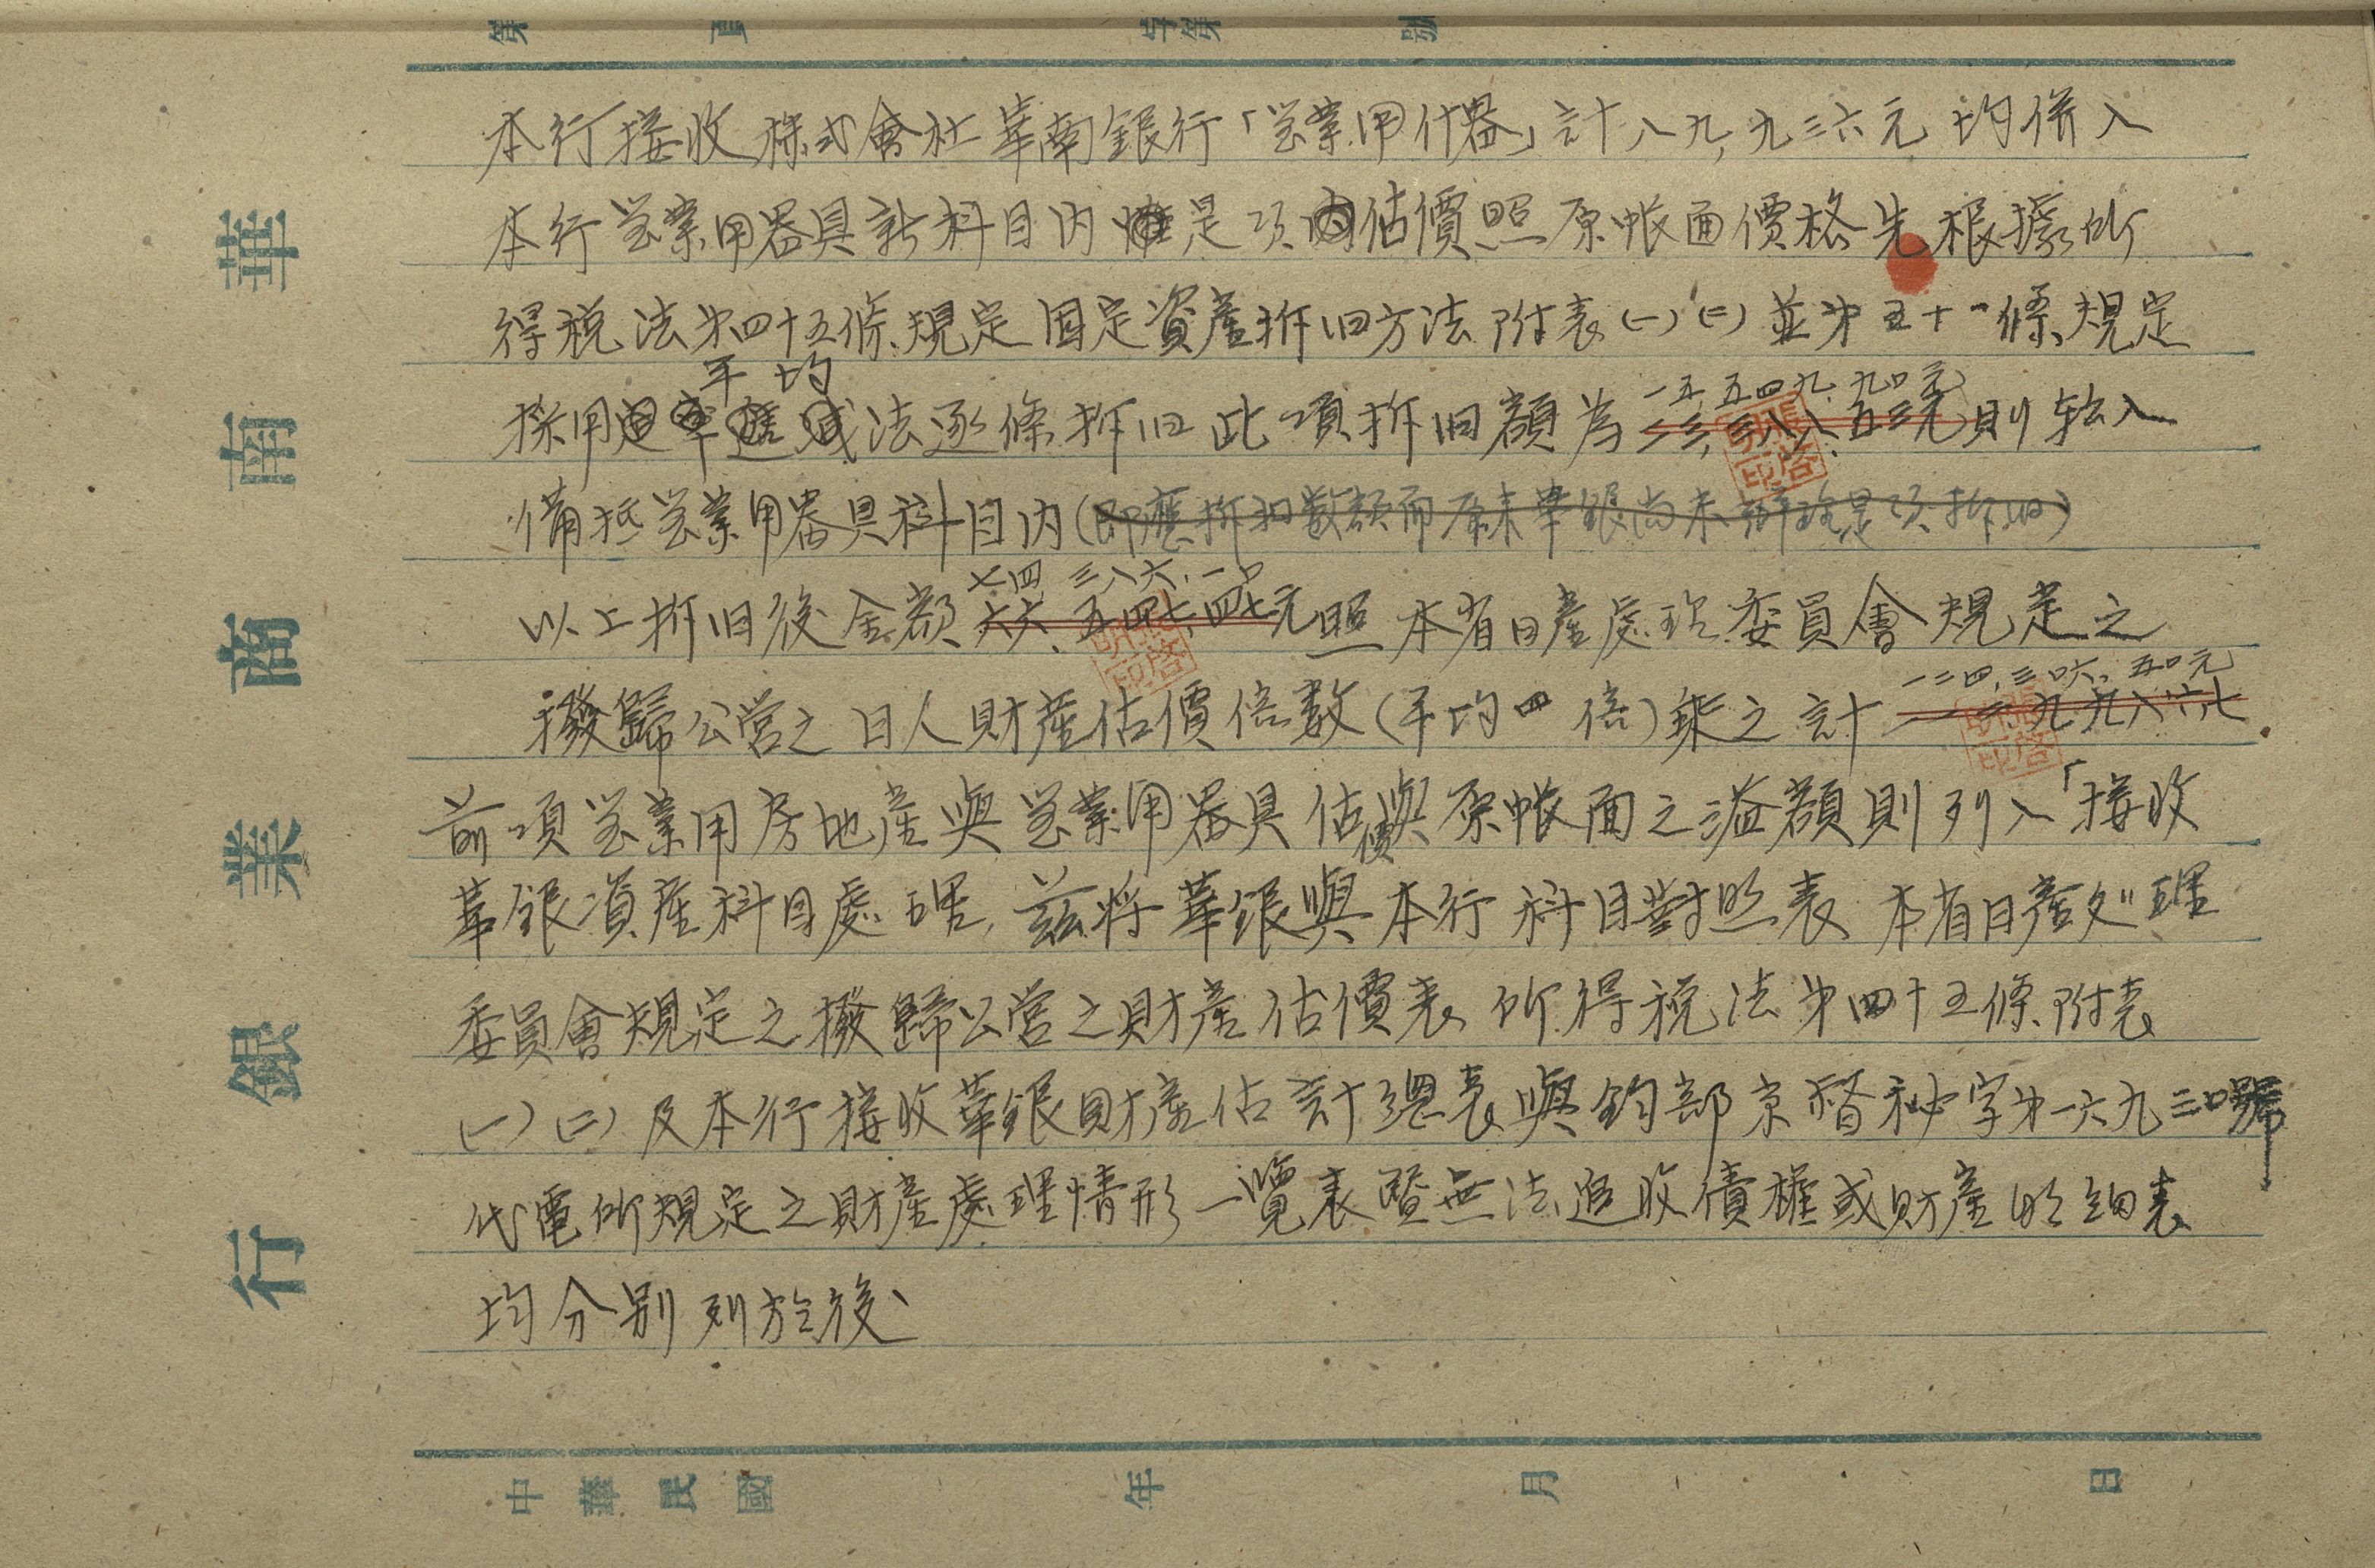 第 頁 字第 號
本行接收株式會社華南銀行「営業用什器」計八九,九三六元均併入
本行営業用器具新科目內惟是項估價照原帳面價格先根據所
得税法第四十五條規定固定資產折旧方法附表(一)(二)並第五十一條規定
平均 一五,五四九.九〇元
採用定率遞減法逐條折旧此項折旧額為二三,三八八.五三元則転入
備抵営業用器具科目內(即應折扣数額而原来華銀尚未辦理是項折旧)
七四,三八六.一〇
以上折旧後金額六六,五四七.四七元照本省日產處理委員會規定之
一二四,三〇六.五〇元
撥歸公营之日人財産估價倍數(平均四倍)乗之計一一九九八六七
前項営業用房地產與営業用器具估價與原帳面之溢額則列入「接收
華銀資産科目處理,茲將華銀與本行科目對照表本省日產处理
委員會規定之撥歸公营之財產估價表所得税法第四十五條附表
(一)(二)及本行接收華銀財產估計總表與鈞部京督秘字第一六九三〇號
代電所規定之財產處理情形一覽表暨無法追收債權或財產明細表
均分別列於後
華南商業銀行
中華民國 年 月 日